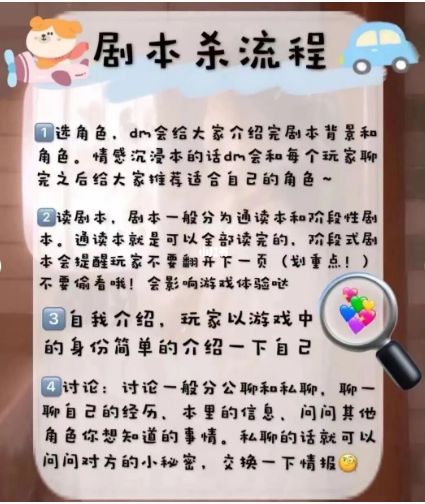 剧本杀流程
1选角色，dm会给大家介绍完剧本背景和
角色。情感沉浸本的话dm会和每个玩家聊
完之后给大家推荐适合自己的角色~
2读剧本，剧本一般分为通读本和阶段性剧
本。通读本就是可以全部读完的，阶段式剧
本会提醒玩家不要翻开下一页（划重点！）
不要偷看哦！会影响游戏体验哒
3自我介绍，玩家以游戏中
的身份简单的介绍一下自己
4讨论：讨论一般分公聊和私聊，聊一
聊自己的经历、本里的信息、问问其他
角色你想知道的事情。私聊的话就可以
问问对方的小秘密，交换一下情报